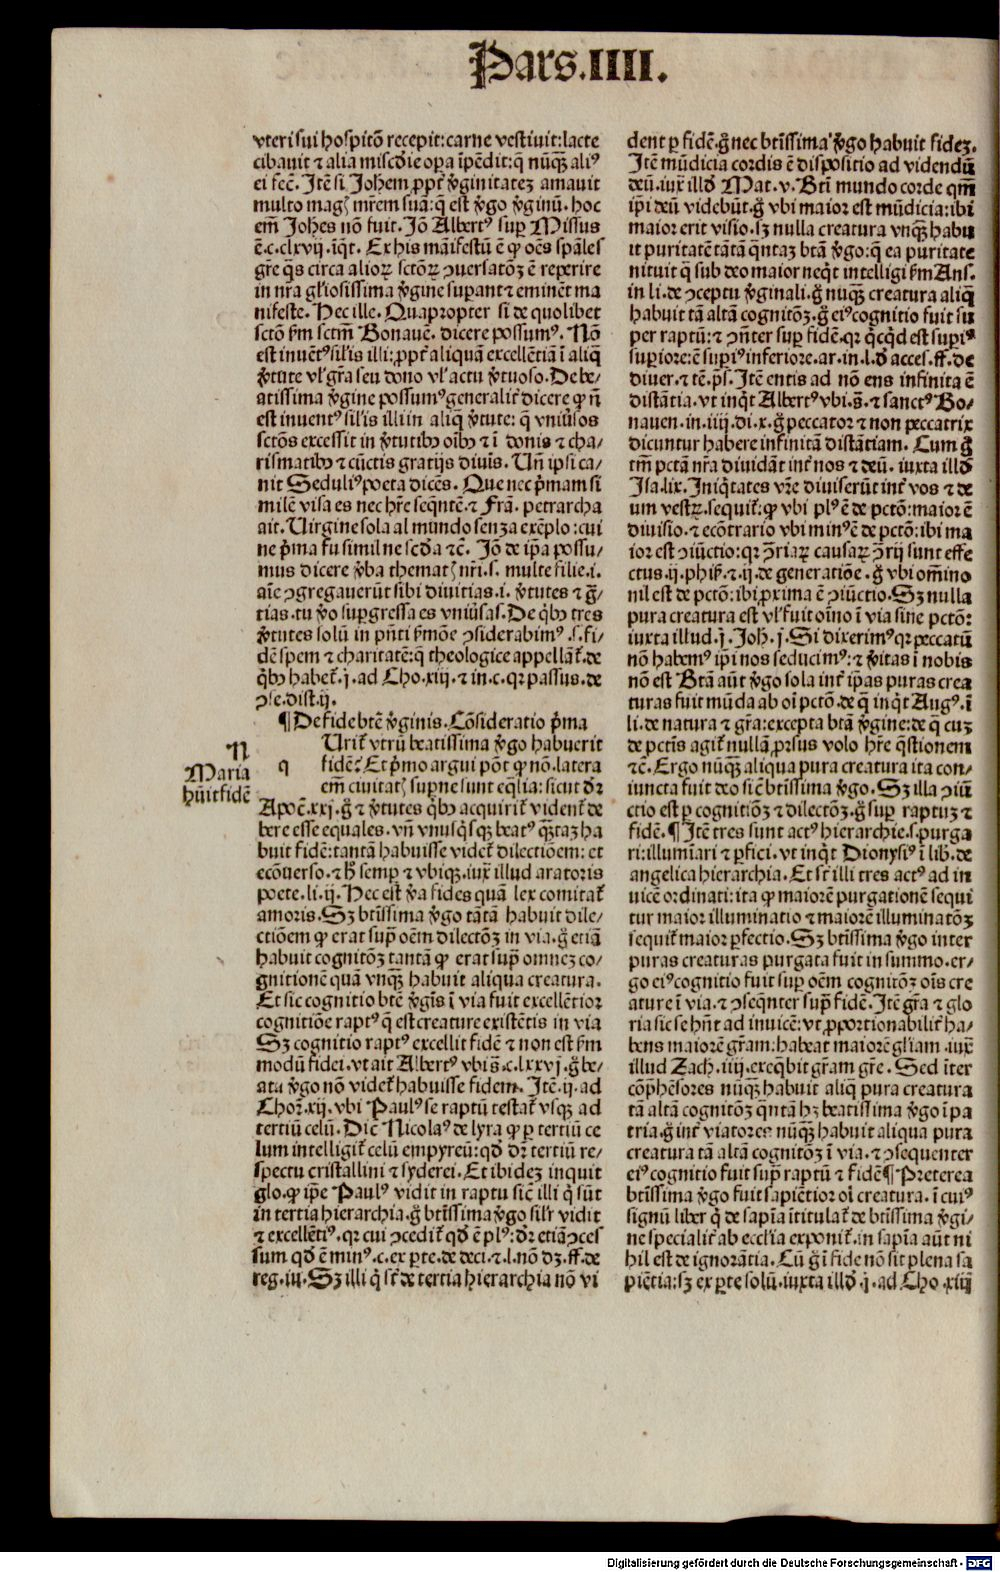 Pars.IIII.
vteri sui hospitō recepit: carne vestiuit: lacte
cibauit ⁊ alia miscd̄ie opa īpēdit: q̄ nūqꝫ̄ aliꝰ
ei fec̄. Itē si Johem ꝓpt̄ v̄ginitatez amauit
multo magꝭ mr̄em suā: q̄ est v̄go v̄ginū. hoc
em̄ Johes nō fuit. Jō Albertꝰ sup̄ Missus
ē.c.clxvij.iq̄t. Ex his māifestū ē ꝙ oēs spāles
gr̄e q̄s circa alioꝝ sctōꝝ ↄuersatōꝫ ē reperire
in nr̄a gl̄iosissima v̄gine suꝑant ⁊ eminēt ma
nifeste. Hec ille. Quapropter si de quolibet
sctō ẜm sctm̄ Bonauē. dicere possumꝰ. Nō
est inuētꝰ sil̄is illi: ꝓpt̄ aliquā excellētiā ī aliq̄
v̄tute vl̓ gr̄a seu dono vl̓ actu v̄tuoso. De be/
atissima v̄gine possumꝰ generalit̓ dicere ꝙ nō
est inuentꝰ sil̄is illi in aliq̄ v̄tute: q̄ vniūsos
sctōs excessit in v̄tutibꝫ oībꝫ ⁊ ī donis ⁊ cha/
rismatibꝫ ⁊ cūctis gratijs diuīs. Un̄ ipsi ca/
nit Seduliꝰ poeta dicēs. Que nec p̄mam si
milē visa es nec hr̄e seq̄ntē. ⁊ Frā. petrarcha
ait. Uirgine sola al mundo senza exēplo: cui
ne p̄ma fu simil ne scd̄a ⁊c̄. Jō de ip̄a possu/
mus dicere v̄ba thematꝭ nr̄i.s. multe filie.i.
aīe ↄgregauerūt sibi diuitias.i. v̄tutes ⁊ grā/
tias. tu v̄o suꝑgressa es vniūsas. De q̄bꝫ tres
v̄tutes solū in pn̄ti ẜmōe ↄsiderabimꝰ .s. fi/
dē spem ⁊ charitatē: q̄ theologice appellāt̓. de
q̄bꝫ habet̓.j.ad Cho.xiij. ⁊ in.c. qꝛ passus. de
ↄse. dist.ij.
¶ De fide btē v̄ginis. Cōsideratio p̄ma
Urit̓ vtrū beatissima v̄go habuerit
q fidē? Et p̄mo argui pōt ꝙ nō. latera
em̄ ciuitatꝭ suꝑne sunt eq̄lia: sicut dr̄
N
Maria
hūit fidē
Apoc̄.xxj. ḡ ⁊ v̄tutes q̄bꝫ acquirit̓ vident̓ de
bere esse equales. vn̄ vnusq̄sqꝫ beatꝰ q̄taꝫ ha
buit fidē: tantā habuisse videt̓ dilectiōem: et
ecōuerso. ⁊ h̄ semp̄ ⁊ vbiqꝫ. iux̄ illud aratoris
poete.li.ij. Hec est v̄a fides quā lex comitat̓
amoris. Sꝫ btīssima v̄go tātā habuit dile/
ctiōem ꝙ erat sup̄ oēm dilectōꝫ in via. ḡ etiā
habuit cognitōꝫ tantā ꝙ erat sup̄ omneꝫ co/
gnitionē quā vnqꝫ̄ habuit aliqua creatura.
Et sic cognitio btē v̄gīs ī via fuit excellētior
cognitiōe raptꝰ q̄ est creature existētis in via
Sꝫ cognitio raptꝰ excellit fidē ⁊ non est ẜm
modū fidei. vt ait Albertꝰ vbi s̄.c.lxxvj. ḡ be/
ata v̄go nō videt̓ habuisse fidem. Itē.ij.ad
Choꝝ.xij. vbi Paulꝰ se raptū testat̓ vsqꝫ ad
tertiū celū. Dic̄ Nicolaꝰ de lyra ꝙ ꝑ tertiū ce
lum intelligit̓ celū empyreū: qd̄ dr̄ tertiū re/
spectu cristallini ⁊ syderei. Et ibidez inquit
glo. ꝙ ip̄e Paulꝰ vidit in raptu sic̄ illi q̄ sūt
in tertia hierarchia. ḡ btīssima v̄go sil̄r vidit
⁊ excellētiꝰ. qꝛ cui ↄcedit̓ qd̄ ē plꝰ: dr̄ etiā ↄces
sum qd̄ ē minꝰ.c. ex ꝑte. de deci. ⁊.l. nō dꝫ. ff. de
reg. iu. Sꝫ illi q̄ st̄ de tertia hierarchia nō vi
dent ꝑ fidē. ḡ nec btīssima v̄go habuit fideꝫ.
Itē mūdicia cordis ē dispositio ad videndū
deū. iux̄ illd̄ Mat.v. Btī mundo corde qm̄
ip̄i deū videbūt. ḡ vbi maior est mūdicia: ibi
maior erit visio. sꝫ nulla creatura vnqꝫ̄ habu
it puritatē tātā q̄ntaꝫ btā v̄go: q̄ ea puritate
nituit q̄ sub deo maior neq̄t intelligi ẜm Ans.
in li. de ↄceptu v̄ginali. ḡ nūqꝫ̄ creatura aliq̄
habuit tā altā cognitōꝫ. ḡ eiꝰ cognitio fuit su
per raptū: ⁊ ↄn̄ter suꝑ fidē. qꝛ q̄cq̄d est suꝑiꝰ
suꝑiore: ē suꝑiꝰ inferiore. ar. in.l. d̄ acces. ff. de
diuer. ⁊ tē. p̄s. Itē entis ad nō ens infinita ē
distātia. vt inq̄t Albertꝰ vbi.s̄. ⁊ sanctꝰ Bo/
nauen. in.iiij.di.x. ḡ peccator ⁊ non peccatrix
dicuntur habere infinitā distātiam. Cum ḡ
tm̄ pctā nr̄a diuidāt int̓ nos ⁊ deū. iuxta illd̄
Jsa.lix. Iniq̄tates vr̄e diuiserūt int̓ vos ⁊ de
um vestꝝ. sequit̓: ꝙ vbi plꝰ ē de pctō: maior ē
diuisio. ⁊ ecōtrario vbi minꝰ ē de pctō: ibi ma
ior est ↄiūctio: qꝛ ↄ̄riaꝝ causaꝝ ↄ̄rij sunt effe
ctus.ij. phiẜ. ⁊.ij. de generatiōe. ḡ vbi om̄ino
nil est de pctō: ibi ꝓxima ē ↄiūctio. Sꝫ nulla
pura creatura est vl̓ fuit oīno ī via sine pctō:
iuxta illud.j. Joh.j. Si dixerimꝰ qꝛ peccatū
nō habemꝰ ip̄i nos seducimꝰ: ⁊ v̄itas ī nobis
nō est Btā aūt v̄go sola int̓ ip̄as puras crea
turas fuit mūda ab oī pctō. de q̄ inq̄t Augꝰ. ī
li. de natura ⁊ gr̄a: excepta btā v̄gine: de q̄ cuꝫ
de pctīs agit̓ nullā ꝓrsus volo hr̄e q̄stionem
⁊c̄. Ergo nūqꝫ̄ aliqua pura creatura ita con/
iuncta fuit deo sic̄ btīssima v̄go. Sꝫ illa ↄiū
ctio est ꝑ cognitiōꝫ ⁊ dilectōꝫ. ḡ suꝑ raptuꝫ ⁊
fidē. ¶ Itē tres sunt actꝰ hierarchie.s. purga
ri: illumīari ⁊ ꝑfici. vt inq̄t Dionysiꝰ ī lib̄. de
angelica hierarchia. Et sīt illi tres actꝰ ad in
uicē ordinati: ita ꝙ maiorē purgationē sequi
tur maior illuminatio ⁊ maiorē illuminatōꝫ
sequit̓ maior ꝑfectio. Sꝫ btīssima v̄go inter
puras creaturas purgata fuit in summo. er/
go eiꝰ cognitio fuit suꝑ oēm cognitōꝫ oīs cre
ature ī via. ⁊ ↄseq̄nter sup̄ fidē. Itē gr̄a ⁊ glo
ria sic se hn̄t ad inuicē: vt ꝓportionabilit̓ ha/
bens maiorē gr̄am: habeat maiorē gl̄iam. iux̄
illud Zach.iiij. exeq̄bit gr̄am gr̄e. Sed īter
cōp̄hēsores nūqꝫ̄ habuit aliq̄ pura creatura
tā altā cognitōꝫ q̄ntā hꝫ beatissima v̄go ī pa
tria. ḡ int̓ viatores nūqꝫ̄ habuit aliqua pura
creatura tā altā cognitōꝫ ī via. ⁊ ↄsequenter
eiꝰ cognitio fuit sup̄ raptū ⁊ fidē ¶ Preterea
btīssima v̄go fuit sapiētior oī creatura. ī cuiꝰ
signū liber q̄ de sapīa ītitulat̓ de btīssima v̄gi/
ne specialit̓ ab eccl̄ia exponit̓. in sapīa aūt ni
hil est de ignorātia. Cū ḡ ī fide nō sit plena sa
piētia: sꝫ ex ꝑte solū. iuxta illd̄.j.ad Cho.xiij
Digitalisierung gefördert durch die Deutsche Forschungsgemeinschaft - DFG